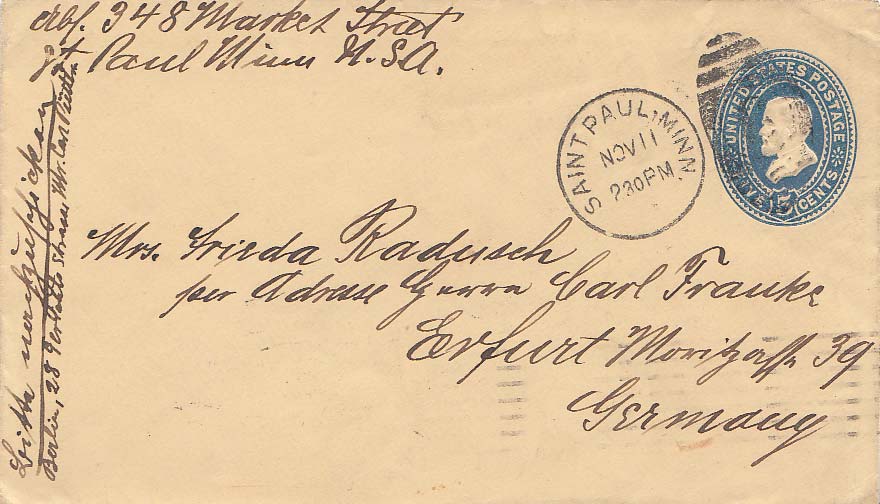 Abs. 348 Market Street
St Paul Minn U.S.A.
SAINT PAUL, MINN.
NOV 11
730PM
UNITED STATES POSTAGE
5 CENTS
Mrs. Frieda Radusch
per Adresse Herrn Carl Franke
Erfurt Moritzgasse 39
Germany
Bitte nachzuschicken
Berlin, 28 strasse Carl